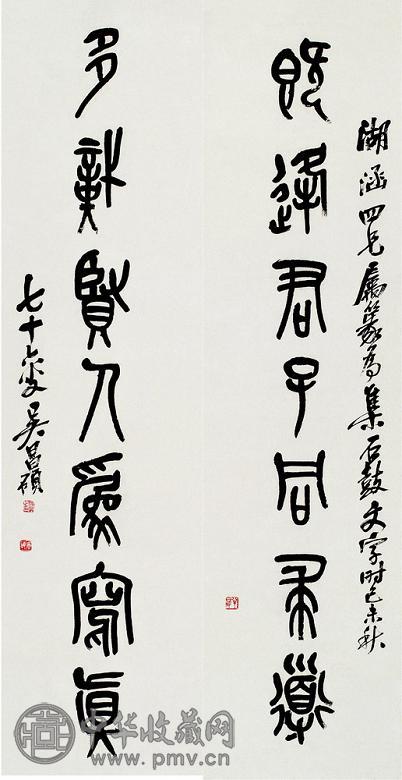 湖涵四兄屬篆為集石鼓文字時己未秋
既逢君子同道
多賢人為寫真
七十六叟吳昌碩
中华收藏网
www.pmv.cn